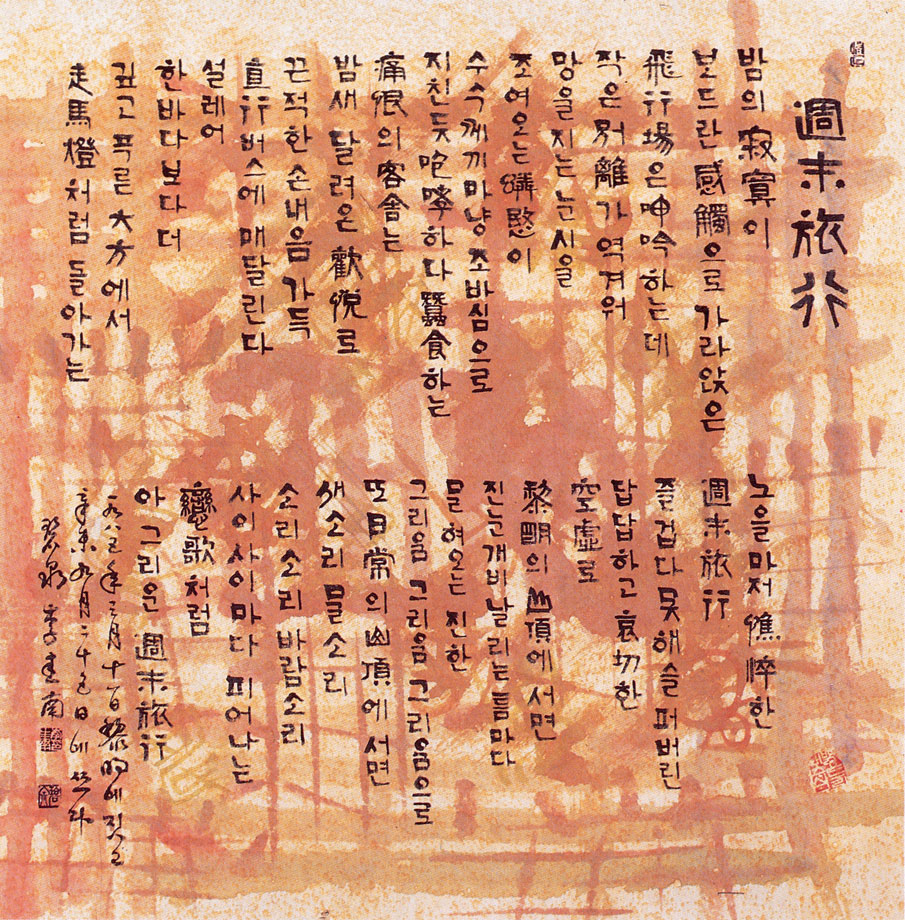 週末旅行
밤의 寂寞이
보드란 感觸으로 가라앉은
飛行場은 呻吟하는데
작은 別離가 역겨워
망울지는 눈시울
조여오는 憐愍이
수수께끼마냥 조바심으로
지친듯 咆哮하다 蠶食하는
痛恨의 客舍는
밤새 달려온 歡悅로
끈적한 손내음 가득
直行버스에 매달린다
설레어
한바다보다 더
깊고 푸른 大方에서
走馬燈처럼 돌아가는
노을마저 憔悴한
週末旅行
즐겁다 못해 슬퍼버린
답답하고 哀切한
空虛로
黎明의 山頂에 서면
진눈개비 날리는 틈마다
물혀오는 진한
그리움 그리움 그리움으로
또 日常의 山頂에 서면
새소리 물소리
소리소리 바람소리
사이사이마다 피어나는
戀歌처럼
아 그리운 週末旅行
一九八五年 三月 十一日 黎明에 짓고
辛未 九月 二十 日에 쓰다
李 南